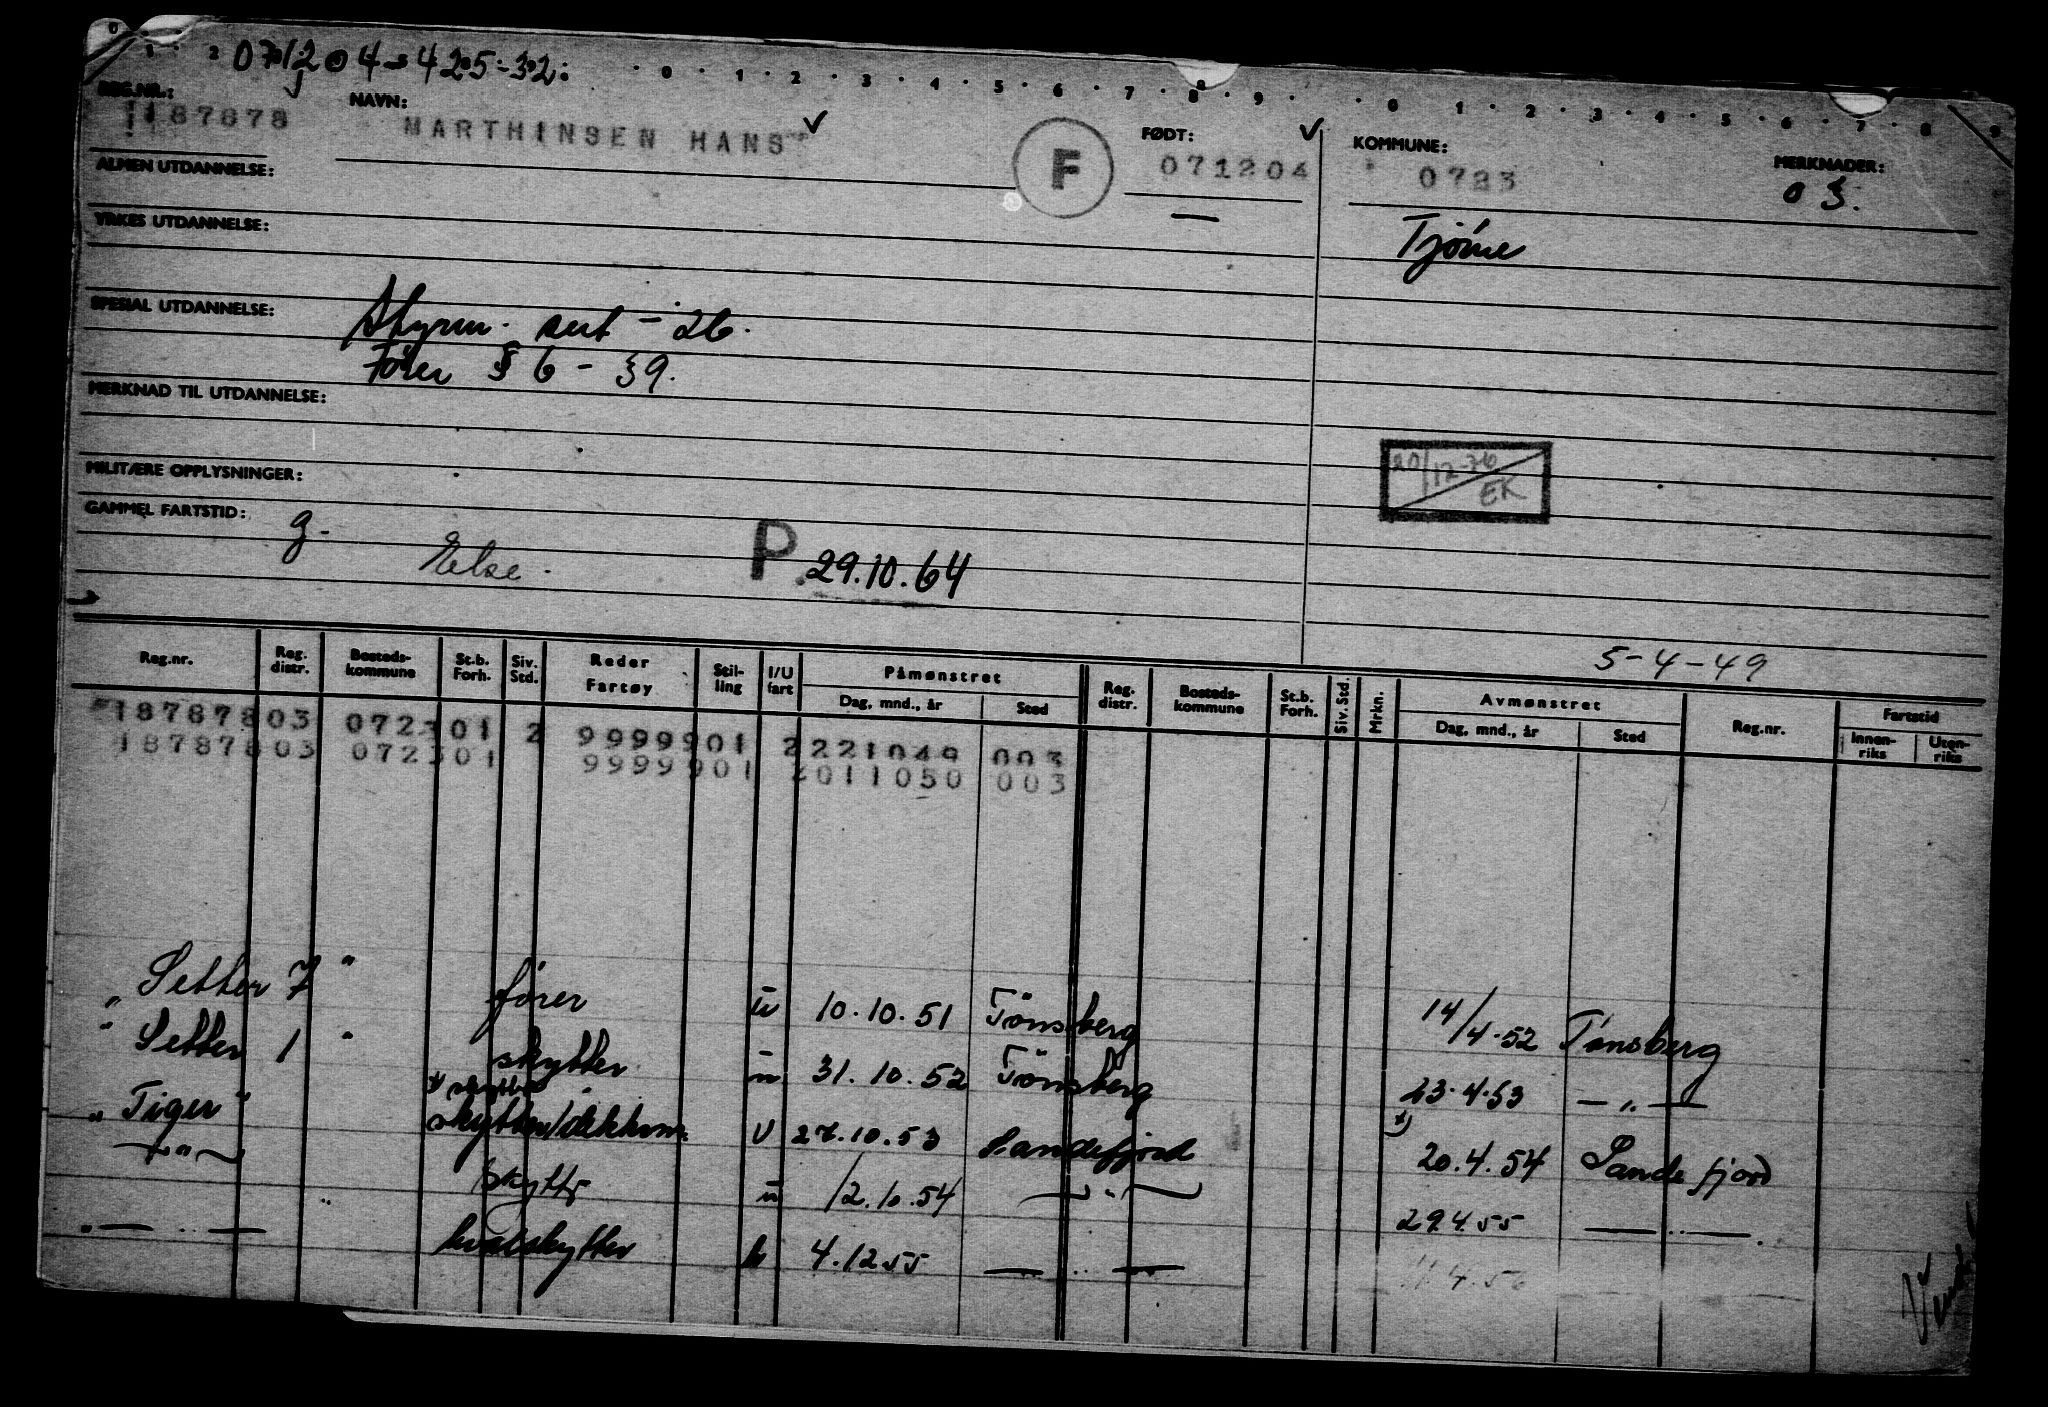 0 1 2 071204-42532: 0 1 2 3 4 5 6 7 8 9 0 1 2 3 4 5 6 7 8 9
REG.NR.: NAVN: FØDT: KOMMUNE: MERKNADER:
187878 MARTHINSEN HANS F 071204 0723 03.
ALMEN UTDANNELSE:
Tjöme
YRKES UTDANNELSE:
SPESIAL UTDANNELSE: Styrm. sert - 26.
Förer § 6 - 39.
MERKNAD TIL UTDANNELSE:
20/12-76 EK
MILITÆRE OPPLYSNINGER:
GAMMEL FARTSTID: g.
Else. P. 29.10.64
5-4-49
Reg.nr. Reg. distr. Bosteds-kommune St.b. Forh. Siv. Std. Reder Fartøy Stil-ling I/U fart Påmønstret Dag, mnd., år Sted Reg. distr. Bosteds-kommune St.b. Forh. Siv. Std. Mrkn. Avmønstret Dag, mnd., år Sted Reg.nr. Fartstid Innen-riks Uten-riks
187878 03 0723 01 2 9999901 2 221049 003
187878 03 0723 01 9999901 2 011050 003
" Setter 7 " förer u 10.10.51 Tönsberg 14/4-52 Tönsberg
" Setter 1 " skytter u 31.10.52 Tönsberg 23.4.53 — " —
x) skytter
" Tiger " skytter/ U 27.10.53 Sandefjord x) 20.4.54 Sandefjord
— " — skytter u 12.10.54 — " — 29.4.55 — " —
" — " — hvalskytter 4.12.55 — " — 11.4.56